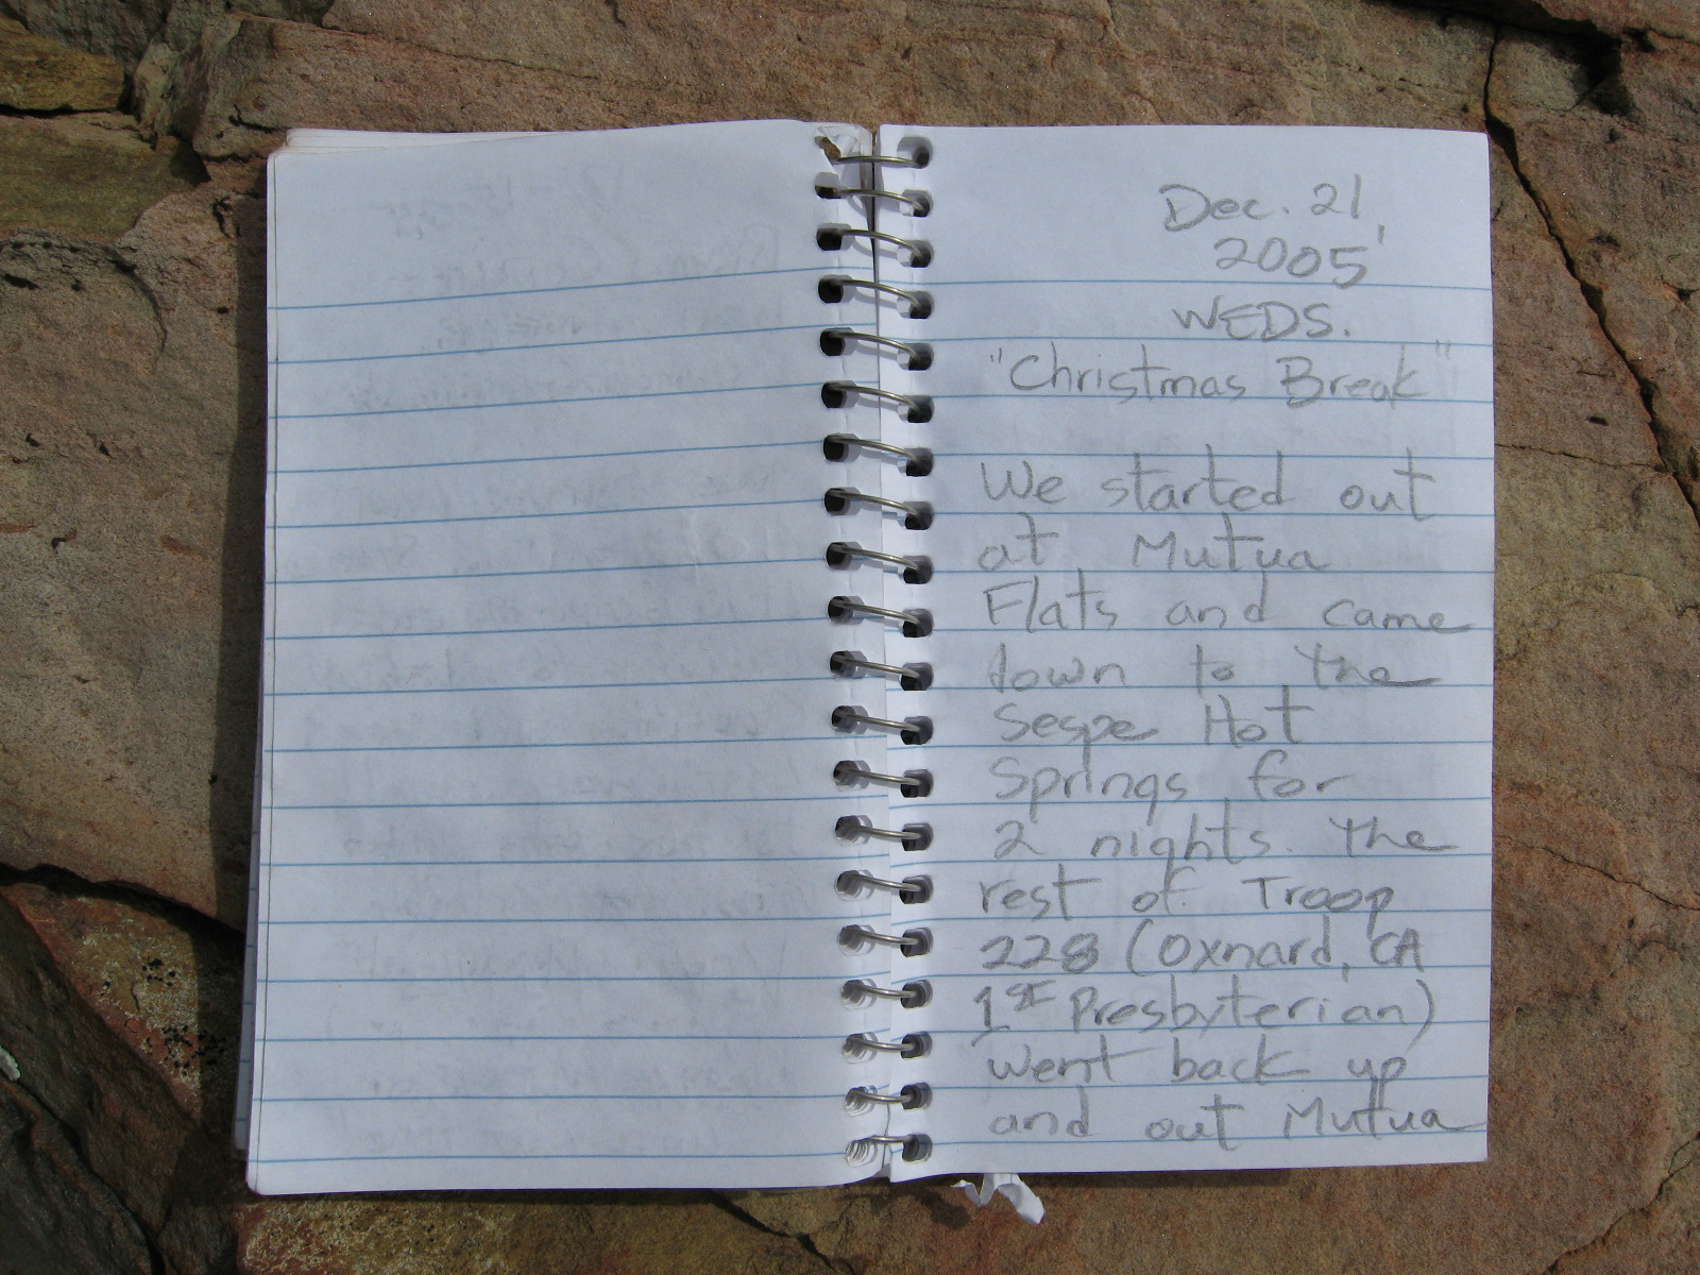 Dec. 21,
2005
WEDS.
"Christmas Break"
We started out
at Mutua
Flats and came
down to the
Sespe Hot
Springs for
2 nights. The
rest of Troop
228 (Oxnard, CA
1ST Presbyterian)
went back up
and out Mutua